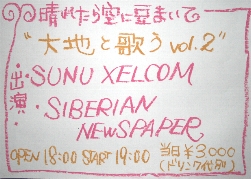 晴れたら空に豆まいて
"大地と歌う vol.2"
出演
・SUNU XELCOM
・SIBERIAN
NEWSPAPER
OPEN 18:00 START 19:00 当日 ¥3000
(ドリンク代別)